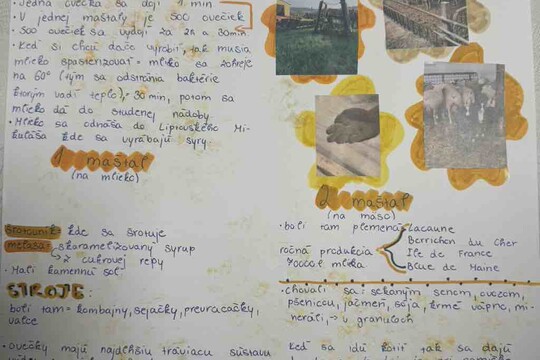 Jedna ovečka sa dojí 1 min
• V jednej maštaľy je 500 ovečiek
• 500 ovečiek sa vydojí za 2h a 30min
• Keď si chcú dačo vyrobiť, tak musia
mlieko spasterizovať = mlieko sa zohreje
na 60° (tým sa odstránia baktérie
ktorým vadí teplo), = 30 min, potom sa
mlieko dá do studenej nádoby
• Mlieko sa odnáša do Liptovského Mi-
kuláša kde sa vyrábajú syry
1 maštaľ
(na mlieko)
šrotovník = kde sa šrotuje
melasa = skaramelizovaný syrup
z cukrovej repy
• Mali kamennú soľ
STROJE:
boli tam = kombajny, sejačky, prevracačky,
valce
• ovečky majú najdlhšiu tráviacu sústavu
2 maštaľ
(na mäso)
• boli tam plemená
Lacaune
Berrichon du Cher
Ile de France
Bleue de Maine
ročná produkcia
70000 l mlieka
• chovali sa: sekaným senom, ovozom,
pšenicou, jačmeň, sója, kŕmne vápno, mi-
neráli, → v granuloch
Keď sa idú kotiť tak sa dajú